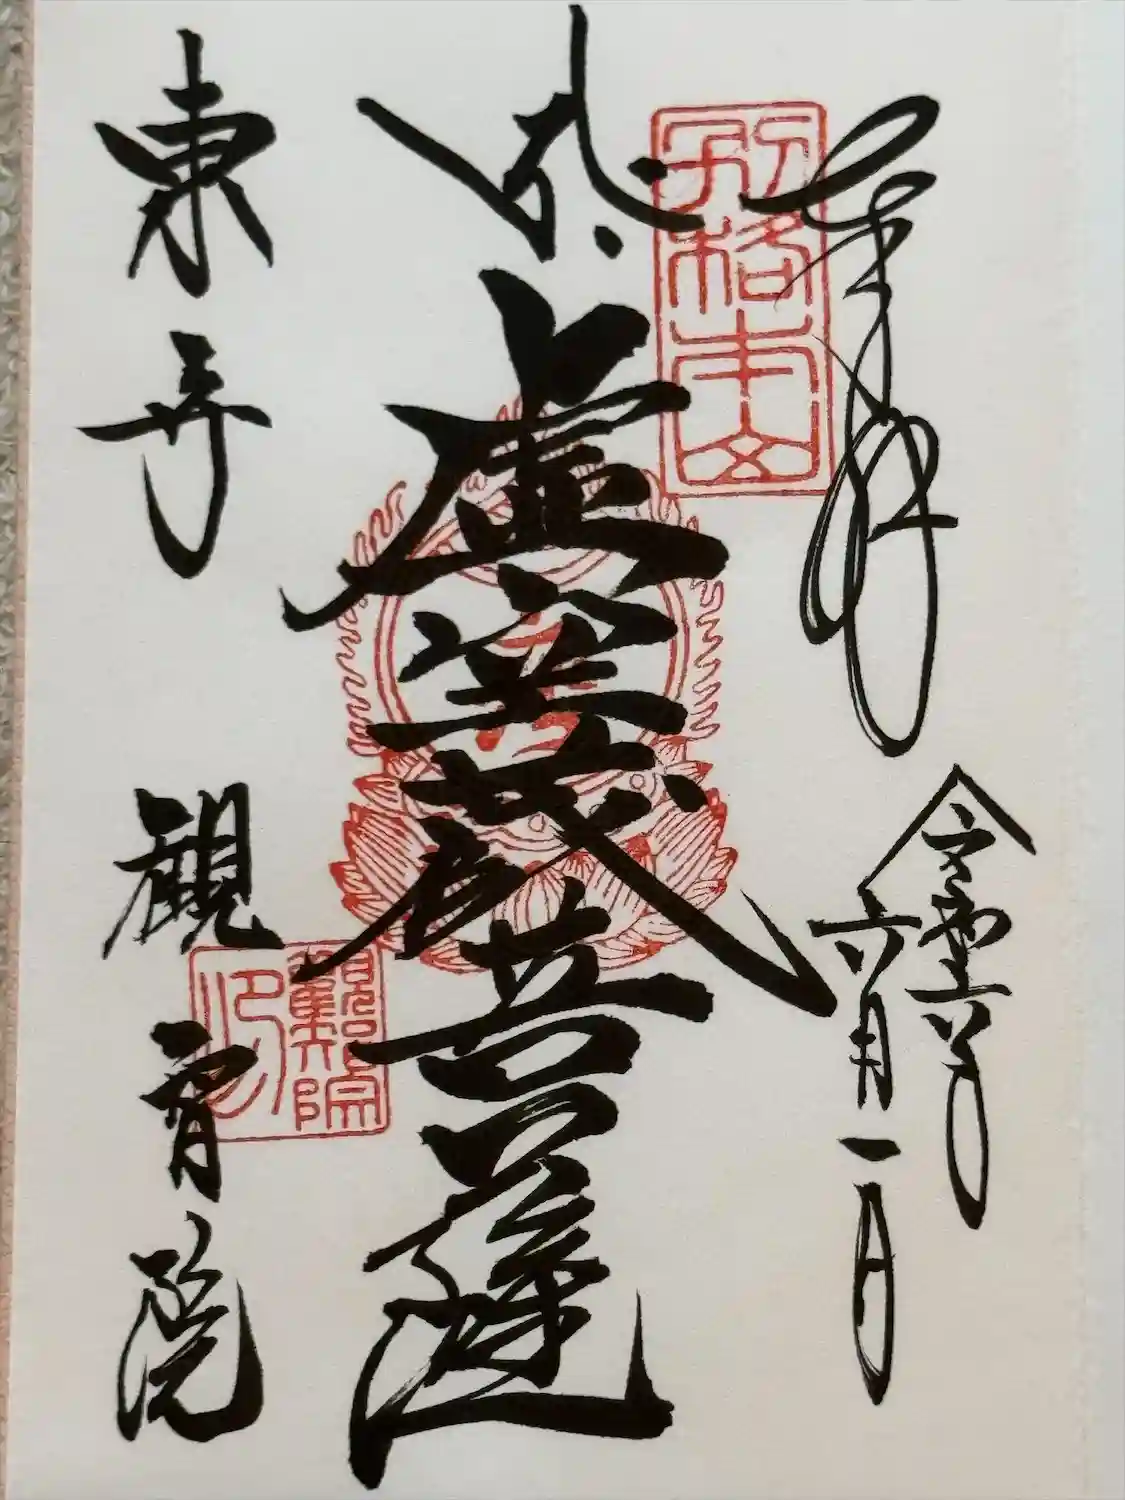 奉拝
令和六年
六月一日
別格本山
虚空蔵菩薩
東寺
観智院
觀智院印